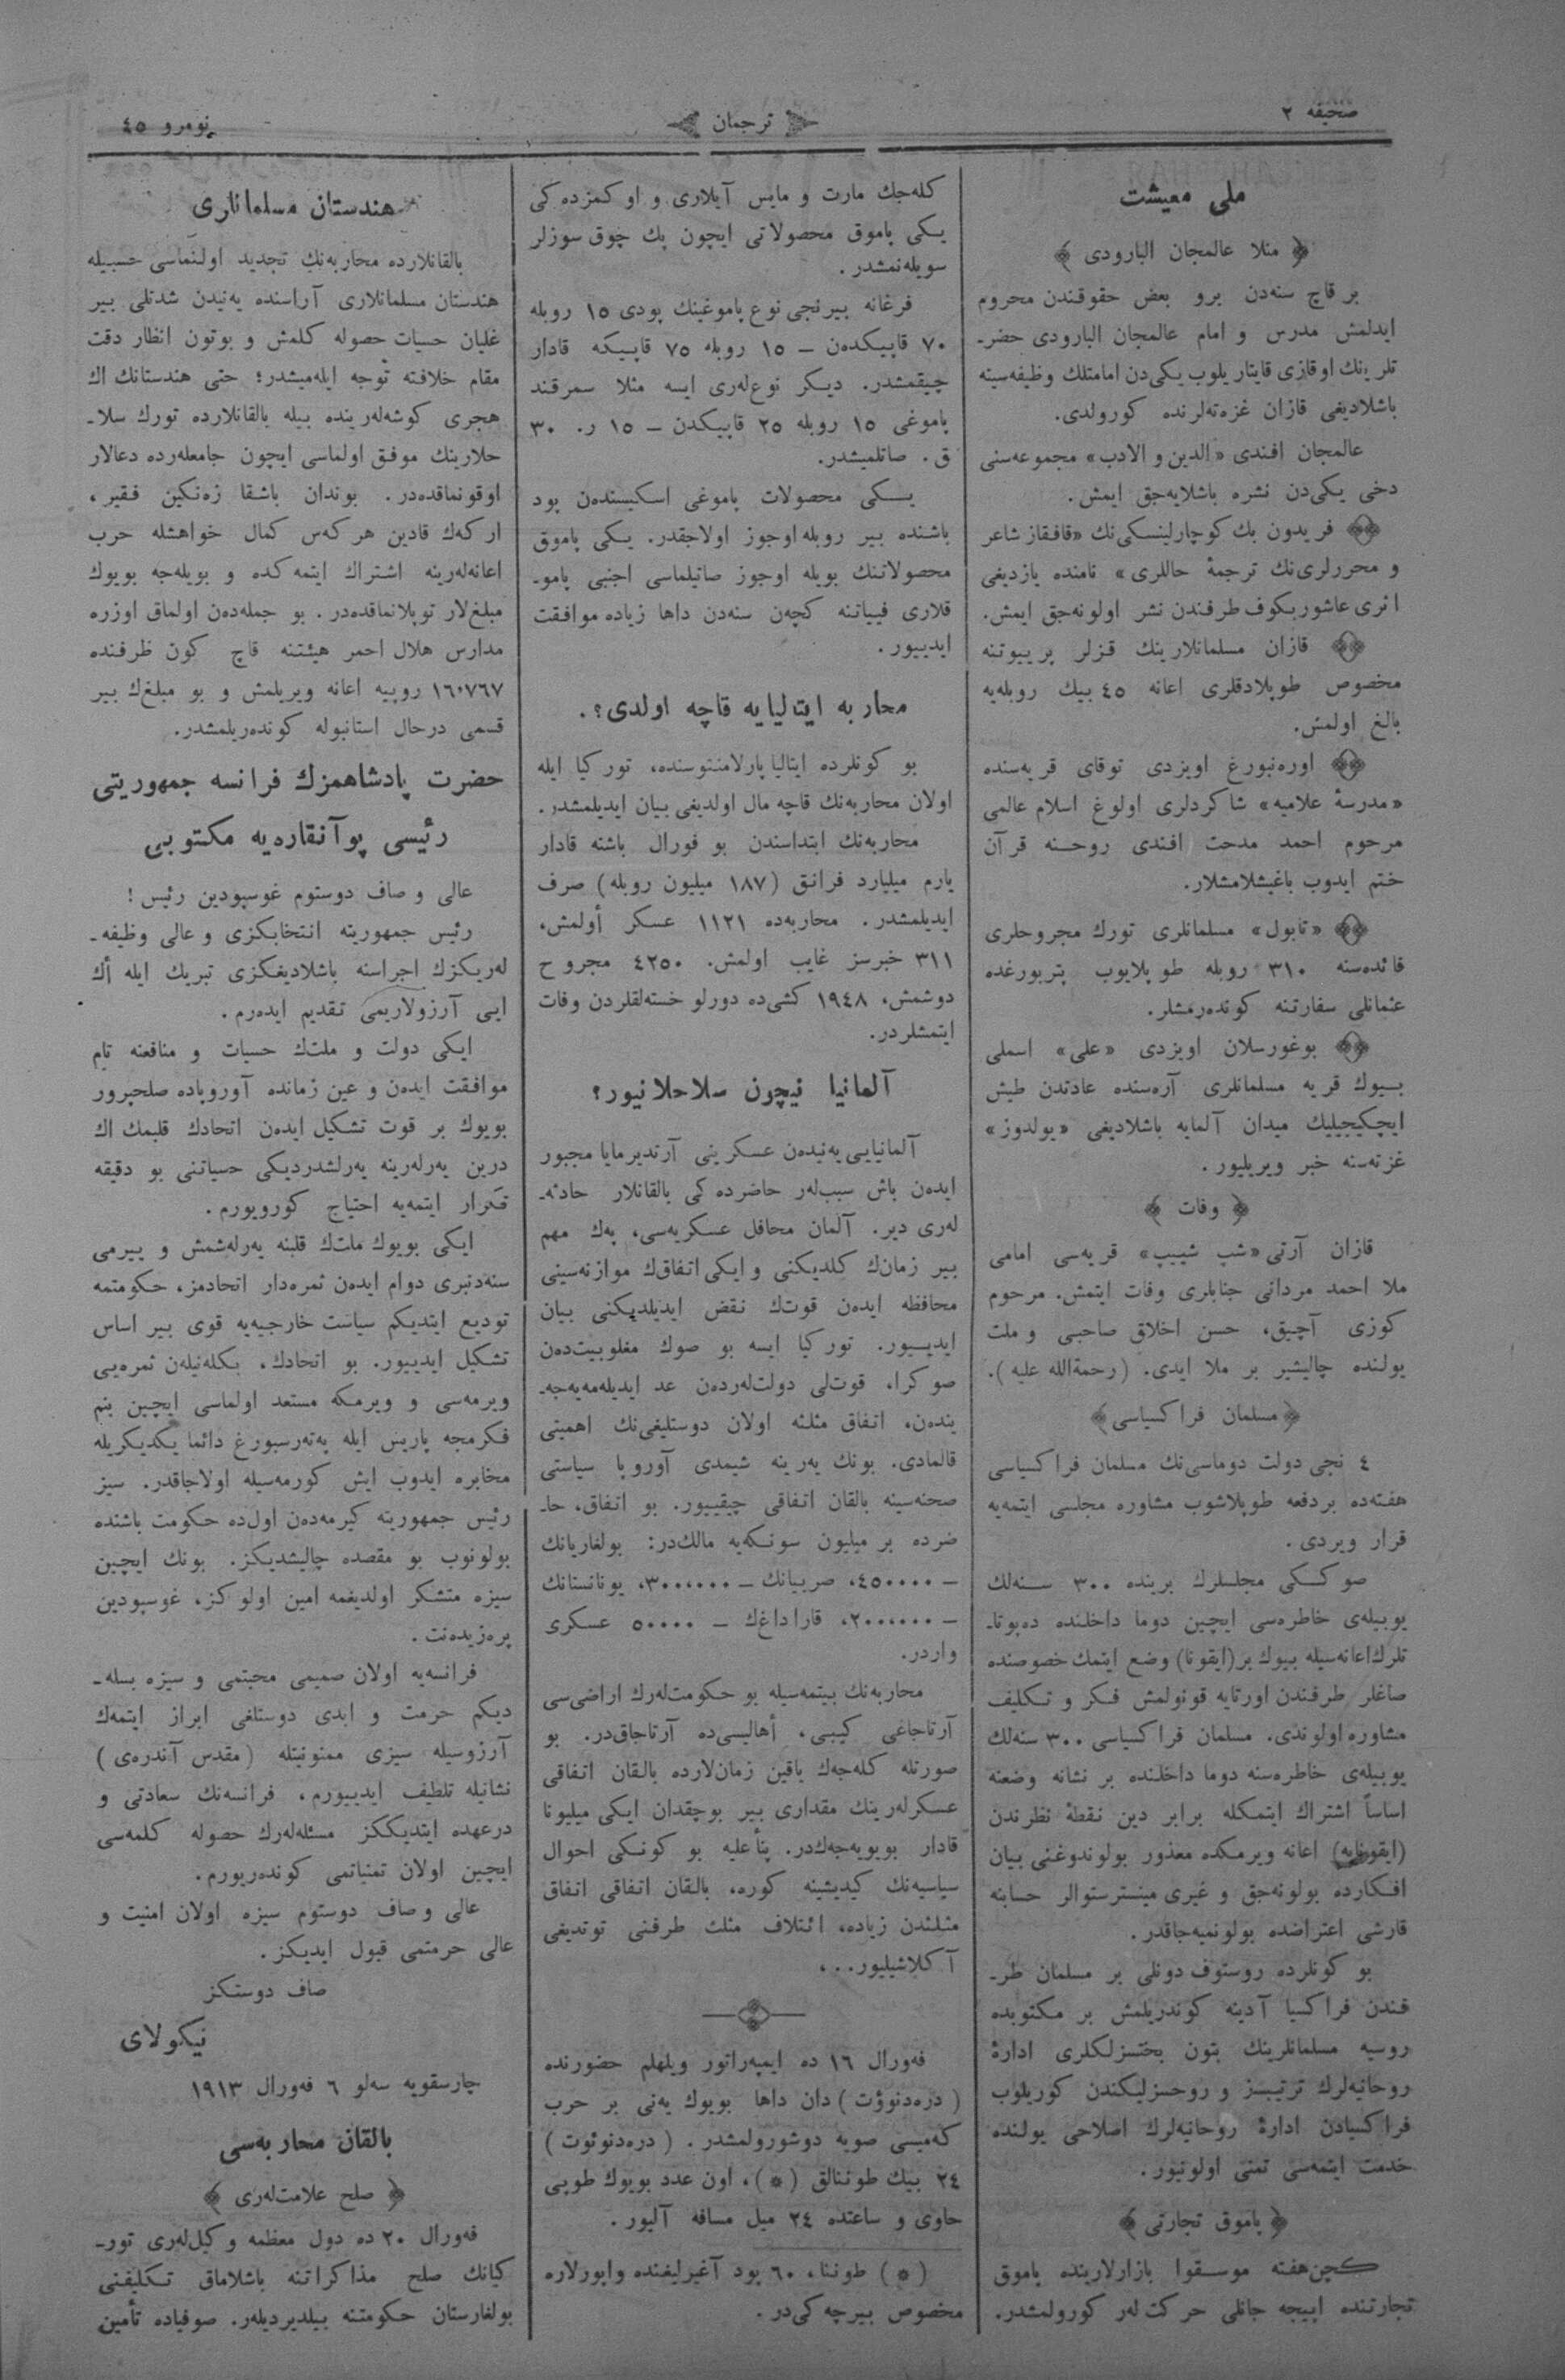 صحیفه ٢
ترجمان
نومرو ٤٥
ملی معیشت
﴿ منلا عالمجان البارودی ﴾
بر قاچ سنه‌دن برو بعض حقوقندن محروم
ایدلمش مدرس و امام عالمجان البارودی حضر-
تلرینك اوقازی قایتاریلوب یکی‌دن امامتلك وظیفه‌سینه
باشلادیغی قازان غزه‌ته‌لرنده کورولدی.
عالمجان افندی «الدین و الادب» مجموعه‌سنی
دخی یکی‌دن نشره باشلایه‌جق ایمش.
فریدون بك کوچارلینسکی‌نك «قافقاز شاعر
و محررلری‌نك ترجمۀ حاللری» نامنده یازدیغی
اثری عاشوربکوف طرفندن نشر اولونه‌جق ایمش.
قازان مسلمانلارینك قزلر پرییوتنه
مخصوص طوپلادقلری اعانه ٤٥ بیك روبله‌یه
بالغ اولمش.
اوره‌نبورغ اویزدی توقای قریه‌سنده
«مدرسۀ علامیه» شاکردلری اولوغ اسلام عالمی
مرحوم احمد مدحت افندی روحنه قرآن
ختم ایدوب باغیشلامشلار.
«تابول» مسلمانلری تورك مجروحلری
فائده‌سنه ٣١٠ روبله طوپلایوب پتربورغده
عثمانلی سفارتنه کونده‌رمشلر.
بوغورسلان اویزدی «علی» اسملی
بیوك قریه مسلمانلری آره‌سنده عادتدن طیش
ایچکیجیلیك میدان آلمایه باشلادیغی «یولدوز»
غزته‌سنه خبر ویریلیور.
﴿ وفات ﴾
قازان آرتی «شپ شیپ» قریه‌سی امامی
ملا احمد مردانی جنابلری وفات ایتمش. مرحوم
کوزی آچیق، حسن اخلاق صاحبی و ملت
یولنده چالیشیر بر ملا ایدی. (رحمةالله علیه).
﴿مسلمان فراکسیاسی﴾
٤ نجی دولت دوماسی‌نك مسلمان فراکسیاسی
هفته‌ده بردفعه طوپلاشوب مشاوره مجلسی ایتمه‌یه
قرار ویردی.
صوککی مجلسلرك برینده ٣٠٠ سنه‌لك
یوبیله‌ی خاطره‌سی ایچین دوما داخلنده ده‌پوتا-
تلرك‌اعانه‌سیله بیوك بر(ایقونا) وضع ایتمك خصوصنده
صاغلر طرفندن اورتایه قونولمش فکر و تکلیف
مشاوره اولوندی. مسلمان فراکسیاسی ٣٠٠ سنه‌لك
یوبیله‌ی خاطره‌سنه دوما داخلنده بر نشانه وضعنه
اساساً اشتراك ایتمکله برابر دین نقطۀ نظرندن
(ایقونایه) اعانه ویرمکده معذور بولوندوغنی بیان
افکارده بولونه‌جق و غیری مینسترستوالر حسابنه
قارشی اعتراضده بولونمیه‌جاقدر.
بو کونلرده روستوف دونلی بر مسلمان طر-
فندن فراکسیا آدینه کوندریلمش بر مکتوبده
روسیه مسلمانلرینك بتون بختسزلکلری ادارۀ
روحانیه‌لرك ترتیبسز و روحسزلیکندن کوریلوب
فراکسیادن ادارۀ روحانیه‌لرك اصلاحی یولنده
خدمت ایتمه‌سی تمنی اولونیور.
﴿ پاموق تجارتی ﴾
کچن‌هفته موسقوا بازارلارینده پاموق
تجارتنده اپیجه جانلی حرکت‌لەر کورولمشدر.
کله‌جك مارت و مایس آیلاری و اوکمزده‌کی
یکی پاموق محصولاتی ایچون پك چوق سوزلر
سویله‌نمشدر.
فرغانه بیرنجی نوع پاموغینك پودی ١٥ روبله
٧٠ قاپیکدەن – ١٥ روبله ٧٥ قاپیکه قادار
چیقمشدر. دیکر نوع‌لەری ایسه مثلا سمرقند
پاموغی ١٥ روبله ٢٥ قاپیکدن – ١٥ ر. ٣٠
ق. صاتلمیشدر.
یکی محصولات پاموغی اسکیسندەن پود
باشنده بیر روبله اوجوز اولاجقدر. یکی پاموق
محصولاتنك بویله اوجوز صاتیلماسی اجنبی پامو-
قلاری فییاتنه کچەن سنه‌دن داها زیاده موافقت
ایدییور.
محاربه ایتالیایه قاچه اولدی؟.
بو کونلرده ایتالیا پارلامنتوسنده، تورکیا ایله
اولان محاربه‌نك قاچه مال اولدیغی بیان ایدیلمشدر.
محاربه‌نك ابتداسندن بو فورال باشنه قادار
یارم میلیارد فرانق (١٨٧ میلیون روبله) صرف
ایدیلمشدر. محاربه‌ده ١١٢١ عسکر أولمش،
٣١١ خبرسز غایب اولمش. ٤٢٥٠ مجروح
دوشمش، ١٩٤٨ کشی‌ده دورلو خسته‌لقلردن وفات
ایتمشلردر.
آلمانیا نیچون سلاحلانیور؟
آلمانیایی یه‌نیدەن عسکرینی آرتدیرمایا مجبور
ایدەن باش سبب‌لەر حاضرده‌کی بالقانلار حادثه-
لەری دیر. آلمان محافل عسکریه‌سی، پەك مهم
بیر زمانك کلدیکنی و ایکی اتفاقك موازنه‌سینی
محافظه ایدەن قوتك نقض ایدیلدیکنی بیان
ایدییور. تورکیا ایسه بو صوك مغلوبیت‌دەن
صوکرا، قوتلی دولت‌لەردەن عد ایدیله‌مه‌یه‌جه-
یندەن، اتفاق مثلثه اولان دوستلیغی‌نك اهمیتی
قالمادی. بونك یەرینه شیمدی آوروپا سیاستی
صحنه‌سینه بالقان اتفاقی چیقییور. بو اتفاق، حا-
ضرده بر میلیون سونکه‌یه مالك‌در: بولغاریانك
– ٤٥٠٠٠٠، صربیانك – ٣٠٠،٠٠٠، یونانستانك
– ٢٠٠،٠٠٠، قاراداغك – ٥٠٠٠٠ عسکری
واردر.
محاربه‌نك بیتمه‌سیله بو حکومت‌لەرك اراضی‌سی
آرتاجاغی کیبی، أهالیسی‌ده آرتاجاق‌در. بو
صورتله کله‌جەك یاقین زمان‌لارده بالقان اتفاقی
عسکرلەرینك مقداری بیر بوچقدان ایکی میلیونا
قادار بویویه‌جەك‌در. بنأعلیه بو کونکی احوال
سیاسیه‌نك کیدیشینه کوره، بالقان اتفاقی اتفاق
مثلثدن زیاده، ائتلاف مثلث طرفنی توتدیغی
آکلاشیلیور...
فه‌ورال ١٦ ده ایمپه‌راتور ویلهلم حضورنده
(دره‌دنوؤت) دان داها بویوك یه‌نی بر حرب
که‌میسی صویه دوشورولمشدر. (دره‌دنوئوت)
٢٤ بیك طوننالق (*)، اون عدد بویوك طوپی
حاوی و ساعتده ٢٤ میل مسافه آلیور.
(*) طوننا، ٦٠ پود آغیرلیغنده واپورلاره
مخصوص بیرچه‌کی‌در.
هندستان مسلمانلری
بالقانلارده محاربه‌نك تجدید اولنماسی حسبیله
هندستان مسلمانلاری آراسنده یه‌نیدن شدتلی بیر
غلیان حسیات حصوله کلمش و بوتون انظار دقت
مقام خلافته توجه ایله‌میشدر؛ حتی هندستانك اك
هجری کوشه‌لەرینده بیله بالقانلارده تورك سلا-
حلارینك موفق اولماسی ایچون جامعلەرده دعالار
اوقونماقده‌در. بوندان باشقا زەنکین فقیر،
ارکەك قادین هرکەس کمال خواهشله حرب
اعانه‌لەرینه اشتراك ایتمه‌کده و بویله‌جه بویوك
مبلغ‌لار توپلانماقده‌در. بو جمله‌دەن اولماق اوزره
مدارس هلال احمر هیئتنه قاچ کون ظرفنده
١٦،٧٦٧ روپیه اعانه ویریلمش و بو مبلغك بیر
قسمی درحال استانبوله کونده‌ریلمشدر.
حضرت پادشاهمزك فرانسه جمهوریتی
رئیسی پوآنقاره‌یه مکتوبی
عالی و صاف دوستوم غوسپودین رئیس!
رئیس جمهوریته انتخابکزی و عالی وظیفه-
لەریکزك اجراسنه باشلادیغکزی تبریك ایله أك
ایی آرزولاریمی تقدیم ایدەرم.
ایکی دولت و ملتك حسیات و منافعنه تام
موافقت ایدەن و عین زمانده آوروپاده صلحپرور
بویوك بر قوت تشکیل ایدەن اتحادك قلبمك اك
درین یەرلەرینه یەرلشدردیکی حسیاتنی بو دقیقه
تکرار ایتمه‌یه احتیاج کورویورم.
ایکی بویوك ملتك قلبنه یەرلەشمش و ییرمی
سنه‌دنبری دوام ایدەن ثمره‌دار اتحادمز، حکومتمه
تودیع ایتدیکم سیاست خارجیه‌یه قوی بیر اساس
تشکیل ایدییور. بو اتحادك، بکله‌نیلەن ثمره‌یی
ویرمه‌سی و ویرمکه مستعد اولماسی ایچین بنم
فکرمجه پاریس ایله پەتەرسبورغ دائما یکدیکریله
مخابره ایدوب ایش کورمه‌سیله اولاجاقدر. سیز
رئیس جمهوریته کیرمه‌دەن اول‌ده حکومت باشنده
بولونوب بو مقصده چالیشدیکز. بونك ایچین
سیزه متشکر اولدیغمه امین اولوکز، غوسپودین
پره‌زیدەنت.
فرانسه‌یه اولان صمیمی محبتمی و سیزه بسله-
دیکم حرمت و ابدی دوستلغی ابراز ایتمەك
آرزوسیله سیزی ممنونیتله (مقدس آندره‌ی)
نشانیله تلطیف ایدییورم، فرانسه‌نك سعادتی و
درعهده ایتدیککز مسئله‌لەرك حصوله کلمه‌سی
ایچین اولان تمنیاتمی کونده‌ریورم.
عالی و صاف دوستوم سیزه اولان امنیت و
عالی حرمتمی قبول ایدیکز.
صاف دوستکز
نیکولای
چارسقویه سه‌لو ٦ فه‌ورال ١٩١٣
بالقان محاربه‌سی
﴿ صلح علامت‌لەری ﴾
فه‌ورال ٢٠ ده دول معظمه وکیل‌لەری تور-
کیانك صلح مذاکراتنه باشلاماق تکلیفنی
بولغارستان حکومتنه بیلدیردیلەر. صوفیاده تأمین